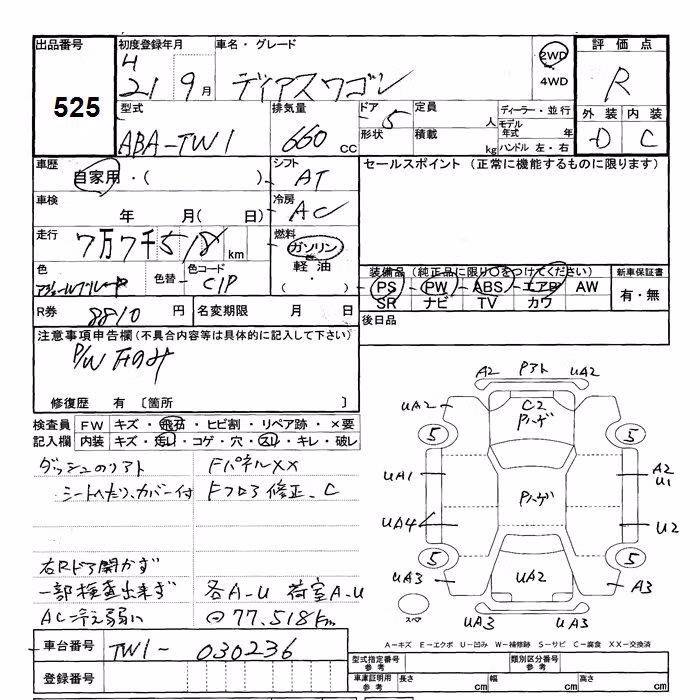 出品番号 初度登録年月 車名・グレード 2WD 評価点
H
525 21 9月 ディアスワゴン 4WD R
型式 排気量 ドア 定員 ディーラー・並行 外装 内装
ABA-TW1 660 cc 5 人 モデル年式 年 D C
形状 積載 kg ハンドル 左・右
車歴 シフト セールスポイント (正常に機能するものに限ります)
自家用・( ) AT
車検 冷房
年 月( 日) AC
走行 燃料
7万7千518 km ガソリン
色 色替 色コード 軽油 装備品 (純正品に限り○をつけてください) 新車保証書
C1P ・( ) PS PW ABS エアB AW 有・無
R券 名変期限 SR ナビ TV カワ
8810 円 月 日 後日品
注意事項申告欄(不具合内容等は具体的に記入して下さい)
P/W 下のみ
修復歴 有 〔箇所 〕
A2 Pアト UA2
検査員 FW キズ・飛石・ヒビ割・リペア跡・×要 UA2 C2 UA2
記入欄 内装 キズ・汚レ・コゲ・穴・スレ・キレ・破レ 5 Pハゲ 5
ダッシュのリアト FパネルXX
シートへたり、カバー付 Fフロア修正、C UA1 A2 U1
Pハゲ
UA4 U2
右Rドア開かず 5 5
一部検査出来ず 各A-U 荷室A、U UA3 UA2 A3
AC冷え弱い 77.518Km スペア UA3 UA3
車台番号 TW1- 030236 A-キズ E-エクボ U-凹み W-補修跡 S-サビ C-腐食 XX-交換済
型式指定番号 参考 類別区分番号 参考
登録番号 車庫証明用 参考 長さ cm 幅 cm 高さ cm